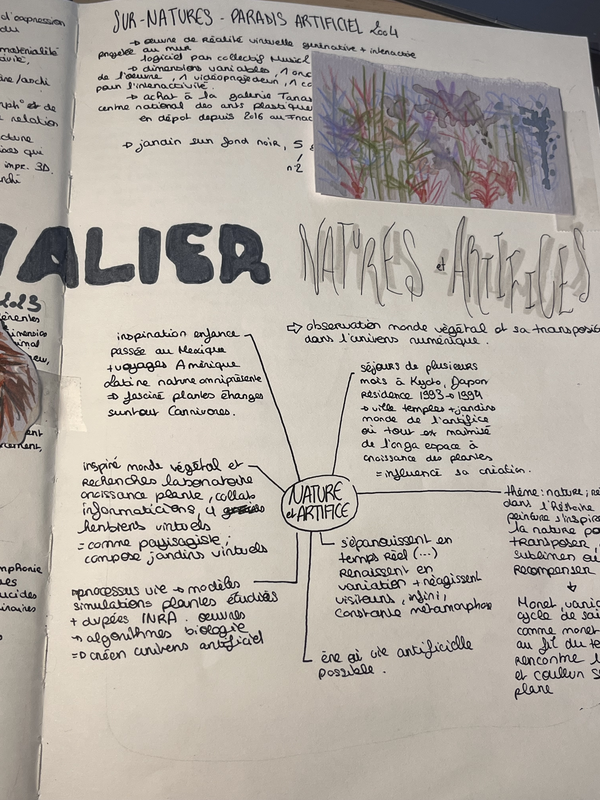 SUR-NATURES - PARADIS ARTIFICIEL 2004
→ œuvre de Réalité virtuelle générative + interactive
projetée au mur
logiciel par collectif Music
→ dimensions variables, 1 ord
de l'œuvre, 1 vidéoprojecteur, 1 ca
pour l'interactivité.
→ achat à la galerie Tanas
centre national des arts plastique
en dépôt depuis 2016 au Frac
→ jardin sur fond noir, 5
/
n°2
d'expression
du
matérialité
relation
impr. 3D.
VALIER
NATURES et ARTIFICES
2023
⇨ observation monde végétal et sa transposi
dans l'univers numérique.
inspiration enfance
passée au Mexique
+ voyages Amérique
latine nature omniprésente
→ fasciné plantes étranges
surtout Carnivores.
séjours de plusieurs
mois à Kyoto, Japon
Résidence 1993 → 1994
→ ville temples + jardins
monde de l'artifice
où tout est maîtrisé
de l'orga espace à
croissance des plantes
= influence sa création.
inspiré monde végétal et
recherches laboratoire
croissance plante, collab
informaticiens, 4
herbiers virtuels
= comme paysagiste,
compose jardins virtuels
NATURE
et ARTIFICE
thème: nature; re
dans l'Histoire
peinture s'inspire
la nature po
transposer,
sublimer ou
Recomposer
↓
Monet, varia
cycle de sai
comme monet
au fil du te
rencontre l
et couleur s
plane
s'épanouissent en
temps Réel (...)
Renaissent en
variation + réagissent
visiteurs, infini,
Constante métamorphose
processus vie → modèles
simulations plantes étudiées
+ dupées INRA. œuvres
→ algorithmes biologie
=> créer univers artificiel
ère où vie artificielle
possible.
mphonie
ucides
inaires